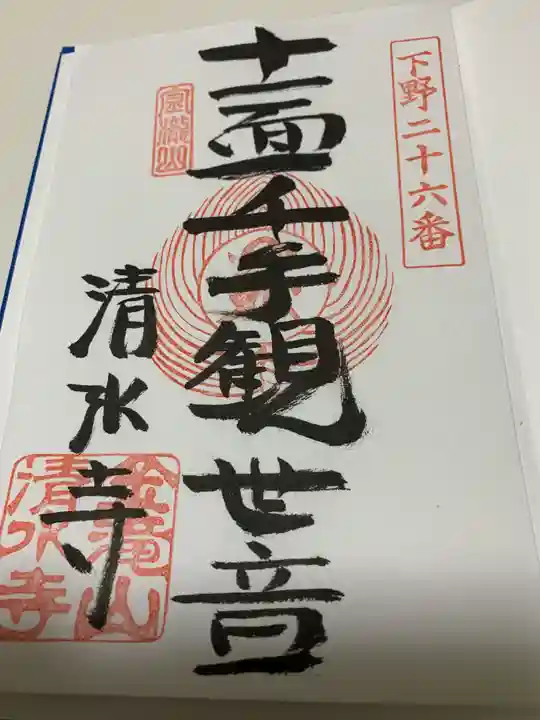 下野二十六番
十一面千手観世音
富瀧山
清水寺
金滝山
清水寺